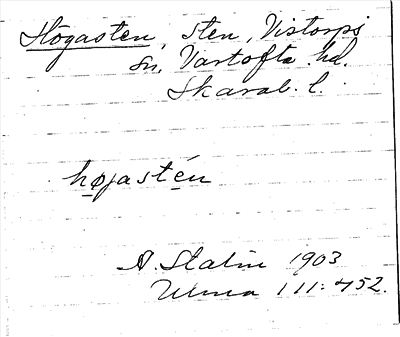 Högasten, sten, Vistorps
sn, Vartofta hd.
Skarab. l.
høgastén
A. Stalin 1903
Ulma 111:452.